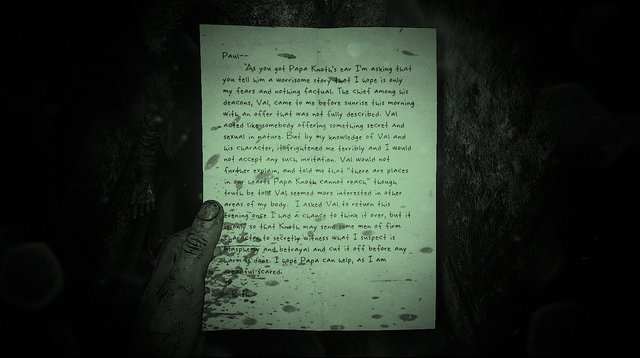 Paul--
"As you got Papa Knoth's ear I'm asking that
you tell him a worrisome story that I hope is only
my fears and nothing factual. The chief among his
deacons, Val, came to me before sunrise this morning
with an offer that was not fully described. Val
acted like somebody offering something secret and
sexual in nature. But by my knowledge of Val and
his character, it frightened me terribly and I would
not accept any such invitation. Val would not
further explain, and told me that "there are places
in our hearts Papa Knoth cannot reach" though
truth be told Val seemed more interested in other
areas of my body. I asked Val to return this
evening once I had a chance to think it over, but it
is only so that Knoth may send some men of firm
character to secretly witness what I suspect is
blasphemy and betrayal and cut it off before any
harm is done. I hope Papa can help, as I am
dreadful scared.